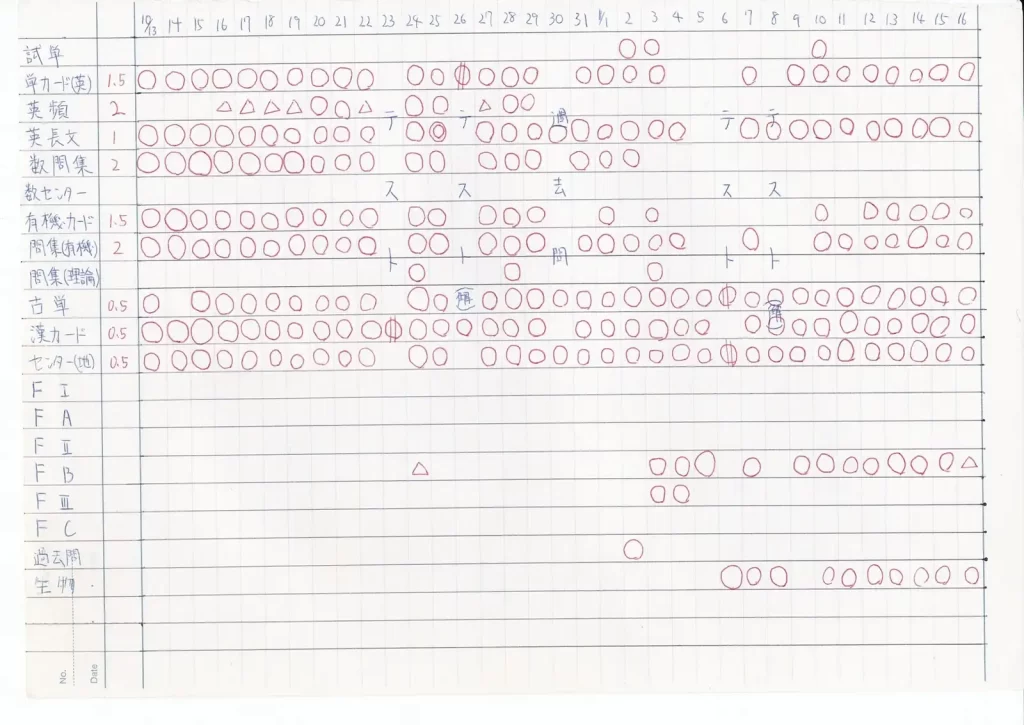 10/13 14 15 16 17 18 19 20 21 22 23 24 25 26 27 28 29 30 31 11/1 2 3 4 5 6 7 8 9 10 11 12 13 14 15 16
試単
単カード(英) 1.5
英頻 2
英長文 1
数問集 2
数センター
有機・カード 1.5
問集(有機) 2
問集(理論)
古単 0.5
漢カード 0.5
センター(地) 0.5
F I
F A
F II
F B
F III
F C
過去問
生物
テスト
テスト
過去問
テスト
テスト
No.
Date